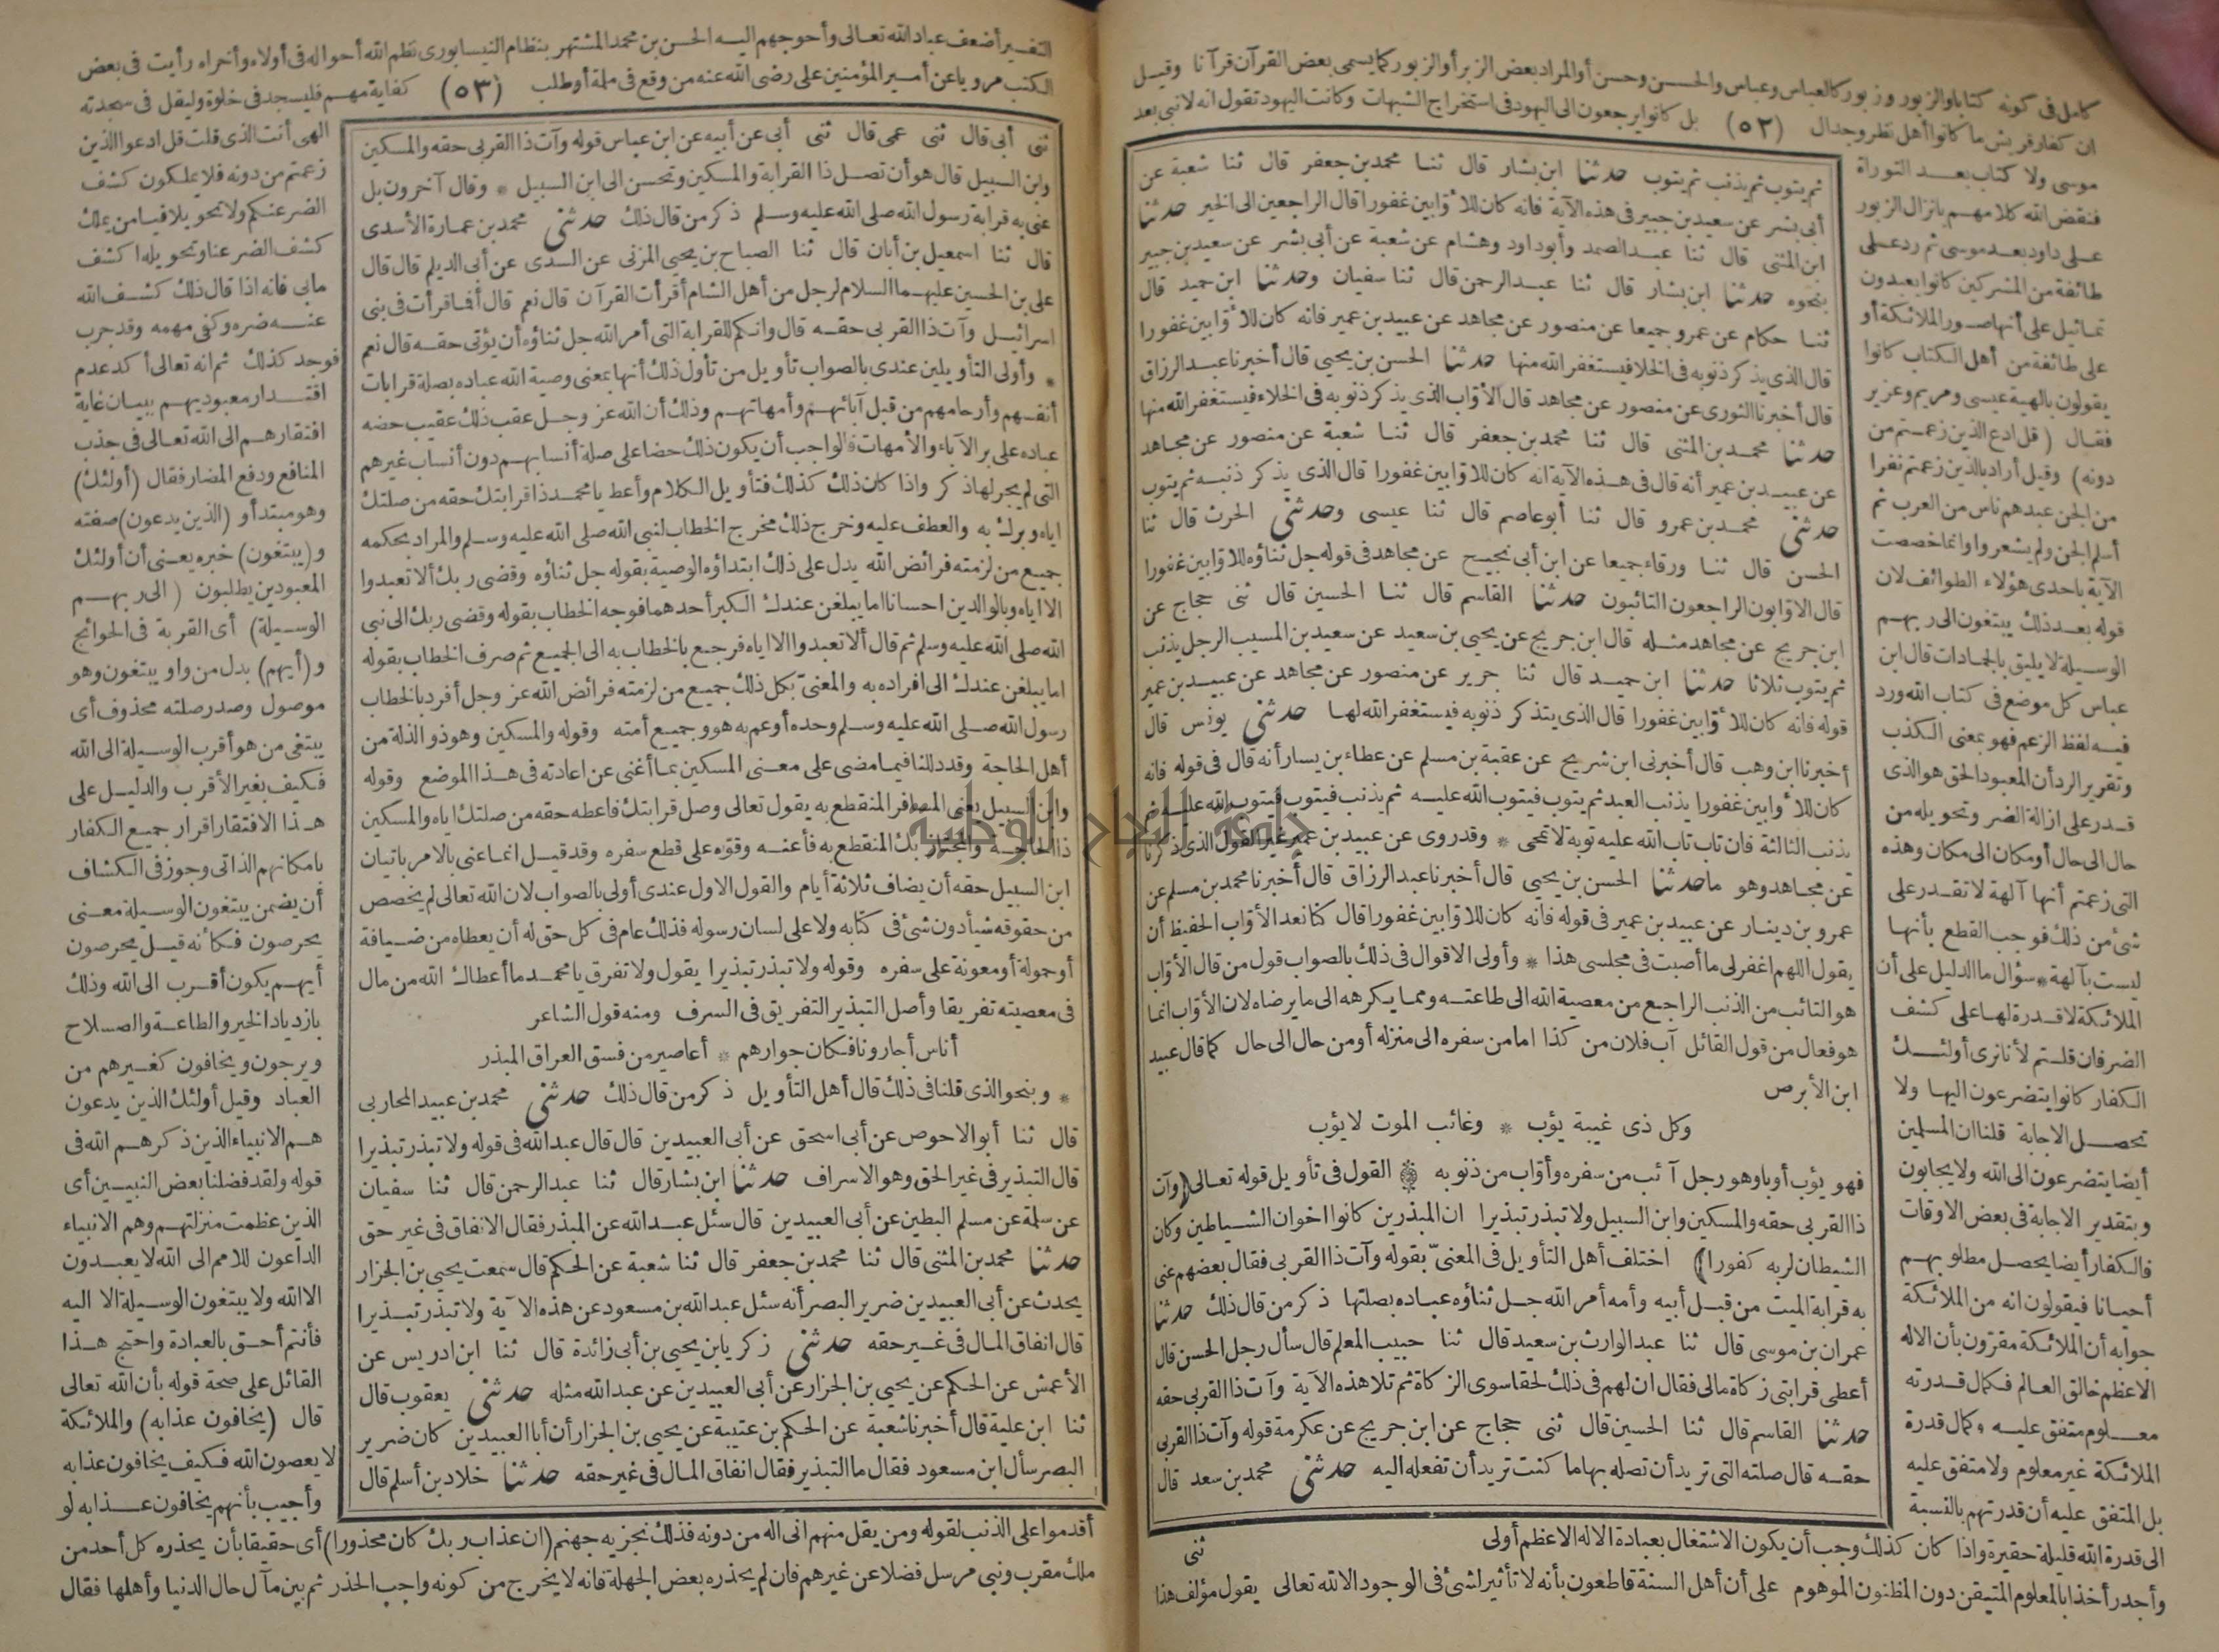 كامل في كونه كتابا والزبور وزبور كالعباس وعباس والحسن وحسن أو المراد بعض الزبر أو الزبور كما يسمى بعض القرآن قرآنا وقيل
ان كفار قريش ما كانوا أهل نظر وجدال (٥٢) بل كانوا يرجعون الى اليهود في استخراج الشبهات وكانت اليهود تقول انه لا نبي بعد
موسى ولا كتاب بعد التوراة
فنقض الله كلامهم بانزال الزبور
على داود بعد موسى ثم رد على
طائفة من المشركين كانوا يعبدون
تماثيل على أنها صور الملائكة أو
على طائفة من أهل الكتاب كانوا
يقولون بالهية عيسى ومريم وعزير
فقال (قل ادع الذين زعمتم من
دونه) وقيل أراد بالذين زعمتم نفرا
من الجن عبدهم ناس من العرب ثم
أسلم الجن ولم يشعروا وانما خصصت
الآية باحدى هؤلاء الطوائف لان
قوله بعد ذلك يبتغون الى ربهم
الوسيلة لا يليق بالجمادات قال ابن
عباس كل موضع في كتاب الله ورد
فيه لفظ الزعم فهو بمعنى الكذب
وتقرير الرد أن المعبود الحق هو الذى
قدر على ازالة الضر وتحويله من
حال الى حال أو مكان الى مكان وهذه
التي زعمتم أنها آلهة لا تقدر على
شئ من ذلك فوجب القطع بأنها
ليست بآلهة * سؤال ما الدليل على أن
الملائكة لا قدرة لها على كشف
الضر فان قلتم لأنا نرى أولئك
الكفار كانوا يتضرعون اليها ولا
تحصل الاجابة قلنا ان المسلمين
أيضا يتضرعون الى الله ولا يجابون
وبتقدير الاجابة في بعض الاوقات
فالكفار أيضا يحصل مطلوبهم
أحيانا فيقولون انه من الملائكة
جوابه أن الملائكة مقرون بأن الاله
الاعظم خالق العالم فكمال قدرته
معلوم متفق عليه وكمال قدرة
الملائكة غير معلوم ولا متفق عليه
بل المتفق عليه أن قدرتهم بالنسبة
الى قدرة الله قليلة حقيرة واذا كان كذلك وجب أن يكون الاشتغال بعبادة الاله الاعظم أولى
وأجدر أخذا بالمعلوم المتيقن دون المظنون الموهوم على أن أهل السنة قاطعون بأنه لا تأثير لشئ في الوجود الا لله تعالى يقول مؤلف هذا
ثم يتوب ثم يذنب ثم يتوب حدثنا ابن بشار قال ثنا محمد بن جعفر قال ثنا شعبة عن
أبي بشر عن سعيد بن جبير في هذه الآية فانه كان للأوابين غفورا قال الراجعين الى الخير حدثنا
ابن المثنى قال ثنا عبد الصمد وأبو داود وهشام عن شعبة عن أبي بشر عن سعيد بن جبير
بنحوه حدثنا ابن بشار قال ثنا عبد الرحمن قال ثنا سفيان وحدثنا ابن حميد قال
ثنا حكام عن عمرو جميعا عن منصور عن مجاهد عن عبيد بن عمير فانه كان للأوابين غفورا
قال الذى يذكر ذنوبه في الخلا فيستغفر الله منها حدثنا الحسن بن يحيى قال أخبرنا عبد الرزاق
قال أخبرنا الثورى عن منصور عن مجاهد قال الأواب الذى يذكر ذنوبه في الخلاء فيستغفر الله منها
حدثنا محمد بن المثنى قال ثنا محمد بن جعفر قال ثنا شعبة عن منصور عن مجاهد
عن عبيد بن عمير أنه قال في هذه الآية انه كان للاوابين غفورا قال الذى يذكر ذنبه ثم يتوب
حدثني محمد بن عمرو قال ثنا أبو عاصم قال ثنا عيسى وحدثني الحرث قال ثنا
الحسن قال ثنا ورقاء جميعا عن ابن أبي نجيح عن مجاهد في قوله جل ثناؤه للاوابين غفورا
قال الاوابون الراجعون التائبون حدثنا القاسم قال ثنا الحسين قال ثني حجاج عن
ابن جريج عن مجاهد مثله قال ابن جريج عن يحيى بن سعيد عن سعيد بن المسيب الرجل يذنب
ثم يتوب ثلاثا حدثنا ابن حميد قال ثنا جرير عن منصور عن مجاهد عن عبيد بن عمير
قوله فانه كان للأوابين غفورا قال الذى يتذكر ذنوبه فيستغفر الله لها حدثني يونس قال
أخبرنا ابن وهب قال أخبرني ابن شريح عن عقبة بن مسلم عن عطاء بن يسار أنه قال في قوله فانه
كان للأوابين غفورا يذنب العبد ثم يتوب فيتوب الله عليه ثم يذنب فيتوب فيتوب الله عليه ثم
يذنب الثالثة فان تاب تاب الله عليه توبة لا تمحى * وقد روى عن عبيد بن عمير غير القول الذى ذكرنا
عن مجاهد وهو ما حدثنا الحسن بن يحيى قال أخبرنا عبد الرزاق قال أخبرنا محمد بن مسلم عن
عمرو بن دينار عن عبيد بن عمير في قوله فانه كان للاوابين غفورا قال كنا نعد الأواب الحفيظ أن
يقول اللهم اغفر لي ما أصبت في مجلسي هذا * وأولى الاقوال في ذلك بالصواب قول من قال الأواب
هو التائب من الذنب الراجع من معصية الله الى طاعته ومما يكرهه الى ما يرضاه لان الأواب انما
هو فعال من قول القائل آب فلان من كذا اما من سفره الى منزله أو من حال الى حال كما قال عبيد
ابن الأبرص
وكل ذى غيبة يؤب * وغائب الموت لا يؤب
فهو يؤب أوبا وهو رجل آئب من سفره وأواب من ذنوبه * القول في تأويل قوله تعالى (وآت
ذا القربى حقه والمسكين وابن السبيل ولا تبذر تبذيرا ان المبذرين كانوا اخوان الشياطين وكان
الشيطان لربه كفورا) اختلف أهل التأويل في المعنى بقوله وآت ذا القربى فقال بعضهم عنى
به قرابة الميت من قبل أبيه وأمه أمر الله جل ثناؤه عباده بصلتها ذكر من قال ذلك حدثنا
عمران بن موسى قال ثنا عبد الوارث بن سعيد قال ثنا حبيب المعلم قال سأل رجل الحسن قال
أعطى قرابتي زكاة مالي فقال ان لهم في ذلك لحقا سوى الزكاة ثم تلا هذه الآية وآت ذا القربى حقه
حدثنا القاسم قال ثنا الحسين قال ثني حجاج عن ابن جريج عن عكرمة قوله وآت ذا القربى
حقه قال صلته التي تريد أن تصله بها ما كنت تريد أن تفعله اليه حدثني محمد بن سعد قال
ثني
التفسير أضعف عباد الله تعالى وأحوجهم اليه الحسن بن محمد المشتهر بنظام النيسابورى نظم الله أحواله في أولاه وأخراه رأيت في بعض
الكتب مرويا عن أمير المؤمنين على رضى الله عنه من وقع في ملمة أو طلب (٥٣) كفاية مهم فليسجد في خلوة وليقل في سجدته
الهى أنت الذى قلت قل ادعوا الذين
زعمتم من دونه فلا يملكون كشف
الضر عنكم ولا تحويلا فيا من يملك
كشف الضر عنا وتحويله اكشف
ما بي فانه اذا قال ذلك كشف الله
عنه ضره وكفي مهمه وقد جرب
فوجد كذلك ثم انه تعالى أكد عدم
اقتدار معبوديهم ببيان غاية
افتقارهم الى الله تعالى في جذب
المنافع ودفع المضار فقال (أولئك)
وهو مبتدأ و (الذين يدعون) صفته
و (يبتغون) خبره يعنى أن أولئك
المعبودين يطلبون (الى ربهم
الوسيلة) أى القربة في الحوائج
و (أيهم) بدل من واو يبتغون وهو
موصول وصدر صلته محذوف أى
يبتغى من هو أقرب الوسيلة الى الله
فكيف بغير الأقرب والدليل على
هذا الافتقار اقرار جميع الكفار
بامكانهم الذاتى وجوز في الكشاف
أن يضمن يبتغون الوسيلة معنى
يحرصون فكأنه قيل يحرصون
أيهم يكون أقرب الى الله وذلك
بازدياد الخير والطاعة والصلاح
ويرجون ويخافون كغيرهم من
العباد وقيل أولئك الذين يدعون
هم الانبياء الذين ذكرهم الله في
قوله ولقد فضلنا بعض النبيين أى
الذين عظمت منزلتهم وهم الانبياء
الداعون للامم الى الله لا يعبدون
الا الله ولا يبتغون الوسيلة الا اليه
فأنتم أحق بالعبادة واحتج هذا
القائل على صحة قوله بأن الله تعالى
قال (يخافون عذابه) والملائكة
لا يعصون الله فكيف يخافون عذابه
وأجيب بأنهم يخافون عذابه لو
أقدموا على الذنب لقوله ومن يقل منهم انى اله من دونه فذلك نجزيه جهنم (ان عذاب ربك كان محذورا) أى حقيقا بأن يحذره كل أحد من
ملك مقرب ونبي مرسل فضلا عن غيرهم فان لم يحذره بعض الجهلة فانه لا يخرج من كونه واجب الحذر ثم بين مآل حال الدنيا وأهلها فقال
ثني أبي قال ثني عمى قال ثني أبي عن أبيه عن ابن عباس قوله وآت ذا القربى حقه والمسكين
وابن السبيل قال هو أن تصل ذا القرابة والمسكين وتحسن الى ابن السبيل * وقال آخرون بل
عنى به قرابة رسول الله صلى الله عليه وسلم ذكر من قال ذلك حدثني محمد بن عمارة الأسدى
قال ثنا اسمعيل بن أبان قال ثنا الصباح بن يحيى المزنى عن السدى عن أبي الديلم قال قال
على بن الحسين عليهما السلام لرجل من أهل الشام أقرأت القرآن قال نعم قال أفما قرأت في بنى
اسرائيل وآت ذا القربى حقه قال وانكم للقرابة التي أمر الله جل ثناؤه أن يؤتى حقه قال نعم
* وأولى التأويلين عندى بالصواب تأويل من تأول ذلك أنها بمعنى وصية الله عباده بصلة قرابات
أنفسهم وأرحامهم من قبل آبائهم وأمهاتهم وذلك أن الله عز وجل عقب ذلك عقيب حضه
عباده على بر الآباء والأمهات فالواجب أن يكون ذلك حضا على صلة أنسابهم دون أنساب غيرهم
التي لم يجر لها ذكر واذا كان ذلك كذلك فتأويل الكلام وأعط يا محمد ذا قرابتك حقه من صلتك
اياه وبرك به والعطف عليه وخرج ذلك مخرج الخطاب لنبي الله صلى الله عليه وسلم والمراد بحكمه
جميع من لزمته فرائض الله يدل على ذلك ابتداؤه الوصية بقوله جل ثناؤه وقضى ربك ألا تعبدوا
الا اياه وبالوالدين احسانا اما يبلغن عندك الكبر أحدهما فوجه الخطاب بقوله وقضى ربك الى نبي
الله صلى الله عليه وسلم ثم قال ألا تعبدوا الا اياه فرجع بالخطاب به الى الجميع ثم صرف الخطاب بقوله
اما يبلغن عندك الى افراده به والمعنى بكل ذلك جميع من لزمته فرائض الله عز وجل أفرد بالخطاب
رسول الله صلى الله عليه وسلم وحده أو عم به هو وجميع أمته وقوله والمسكين وهو ذو الذلة من
أهل الحاجة وقد دللنا فيما مضى على معنى المسكين بما أغنى عن اعادته في هذا الموضع وقوله
وابن السبيل يعنى المسافر المنقطع به يقول تعالى وصل قرابتك فاعطه حقه من صلتك اياه والمسكين
ذا الحاجة والمجتاز بك المنقطع به فأعنه وقوه على قطع سفره وقد قيل انما عنى بالامر باتيان
ابن السبيل حقه أن يضاف ثلاثة أيام والقول الاول عندى أولى بالصواب لان الله تعالى لم يخصص
من حقوقه شيأ دون شئ في كتابه ولا على لسان رسوله فذلك عام في كل حق له أن يعطاه من ضيافة
أو حمولة أو معونة على سفره وقوله ولا تبذر تبذيرا يقول ولا تفرق يا محمد ما أعطاك الله من مال
في معصيته تفريقا وأصل التبذير التفريق في السرف ومنه قول الشاعر
أناس أجارونا فكان جوارهم * أعاصير من فسق العراق المبذر
* وبنحو الذى قلنا في ذلك قال أهل التأويل ذكر من قال ذلك حدثني محمد بن عبيد المحاربى
قال ثنا أبو الاحوص عن أبي اسحق عن أبي العبيدين قال قال عبد الله في قوله ولا تبذر تبذيرا
قال التبذير في غير الحق وهو الاسراف حدثنا ابن بشار قال ثنا عبد الرحمن قال ثنا سفيان
عن سلمة عن مسلم البطين عن أبي العبيدين قال سئل عبد الله عن المبذر فقال الانفاق في غير حق
حدثنا محمد بن المثنى قال ثنا محمد بن جعفر قال ثنا شعبة عن الحكم قال سمعت يحيى بن الجزار
يحدث عن أبي العبيدين ضرير البصر أنه سئل عبد الله بن مسعود عن هذه الآية ولا تبذر تبذيرا
قال انفاق المال في غير حقه حدثني زكريا بن يحيى بن أبي زائدة قال ثنا ابن ادريس عن
الأعمش عن الحكم عن يحيى بن الجزار عن أبي العبيدين عن عبد الله مثله حدثني يعقوب قال
ثنا ابن علية قال أخبرنا شعبة عن الحكم بن عتيبة عن يحيى بن الجزار أن أبا العبيدين كان ضرير
البصر سأل ابن مسعود فقال ما التبذير فقال انفاق المال في غير حقه حدثنا خلاد بن أسلم قال
جامعة النجاح الوطنية